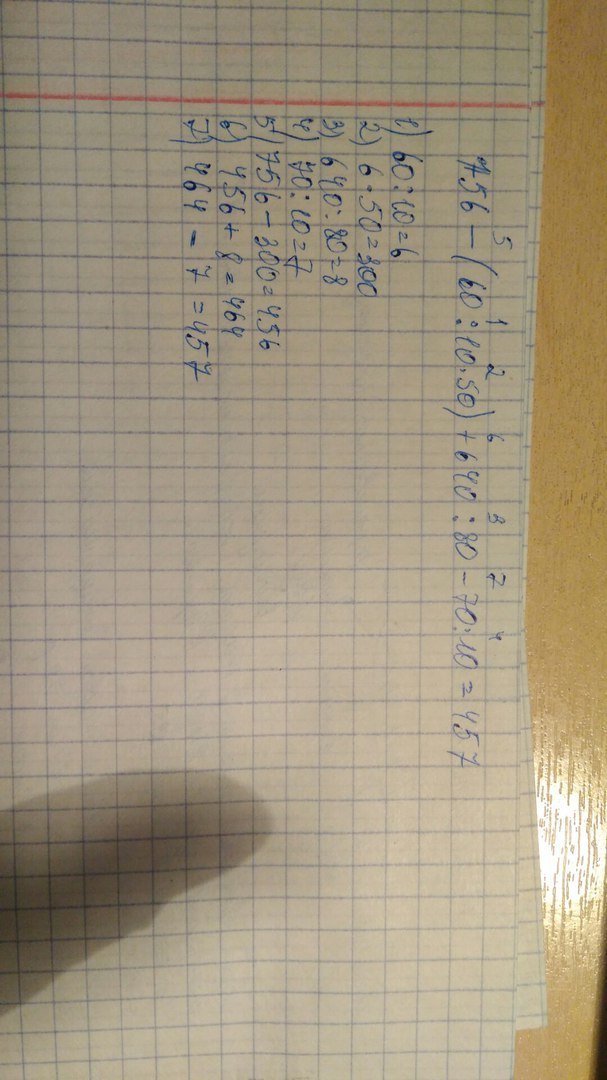 5 1 2 6 3 7 4
756 - (60 : 10 · 50) + 640 : 80 - 70 : 10 = 457
1) 60 : 10 = 6
2) 6 · 50 = 300
3) 640 : 80 = 8
4) 70 : 10 = 7
5) 756 - 300 = 456
6) 456 + 8 = 464
7) 464 - 7 = 457